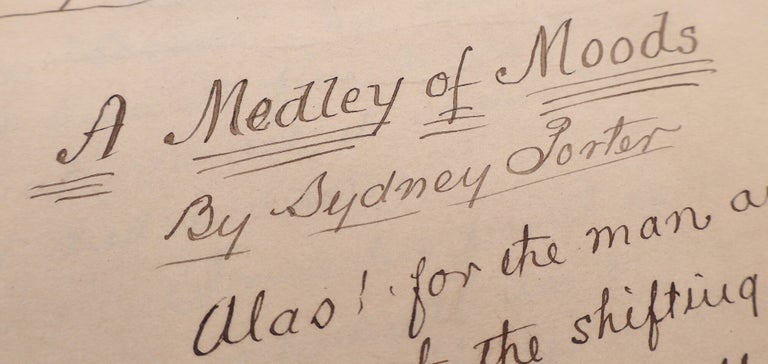 A Medley of Moods
By Sydney Porter
Alas! for the man a
the shifting